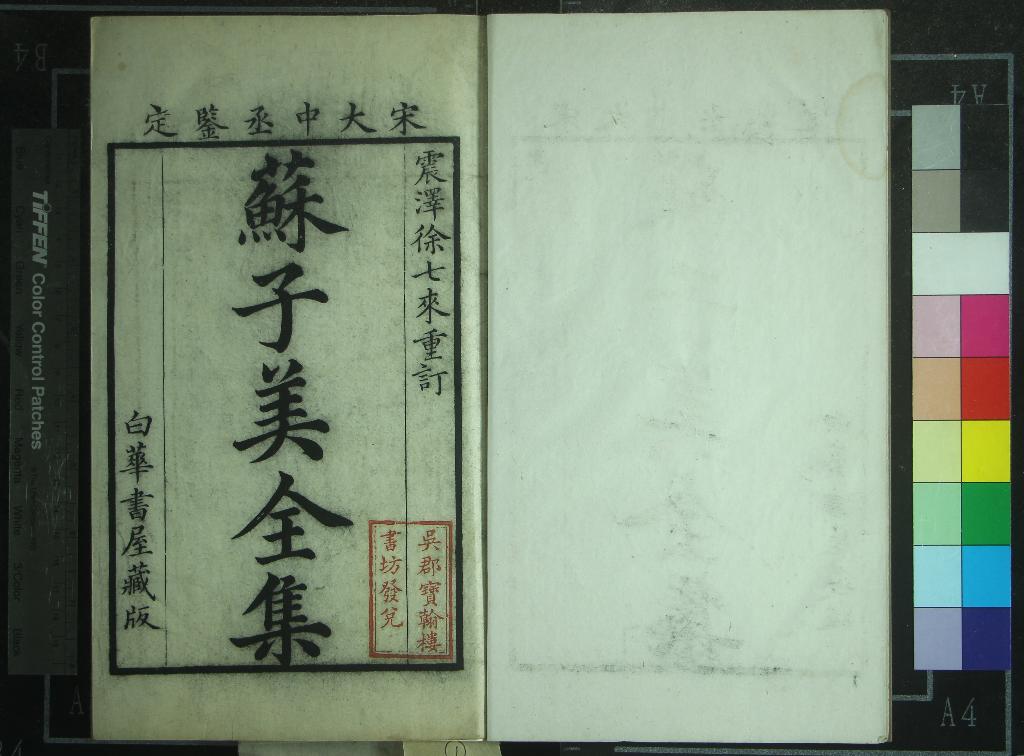 宋大中丞鑒定
震澤徐七來重訂
蘇子美全集
白華書屋藏版
吳郡寶翰樓
書坊發兌
TIFFEN Color Control Patches
B4
A4
A4
①